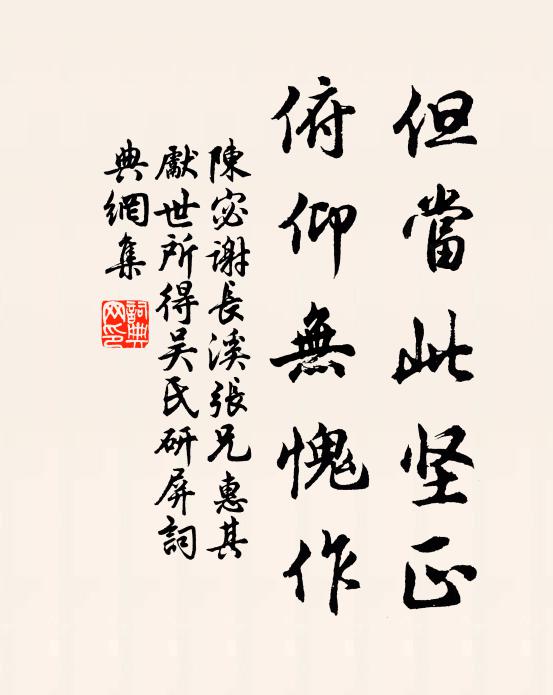 但當此坚正
俯仰無愧作
陳宓谢長溪張兄惠其
獻世所得吴氏研屏詞
典網集
詞典網印